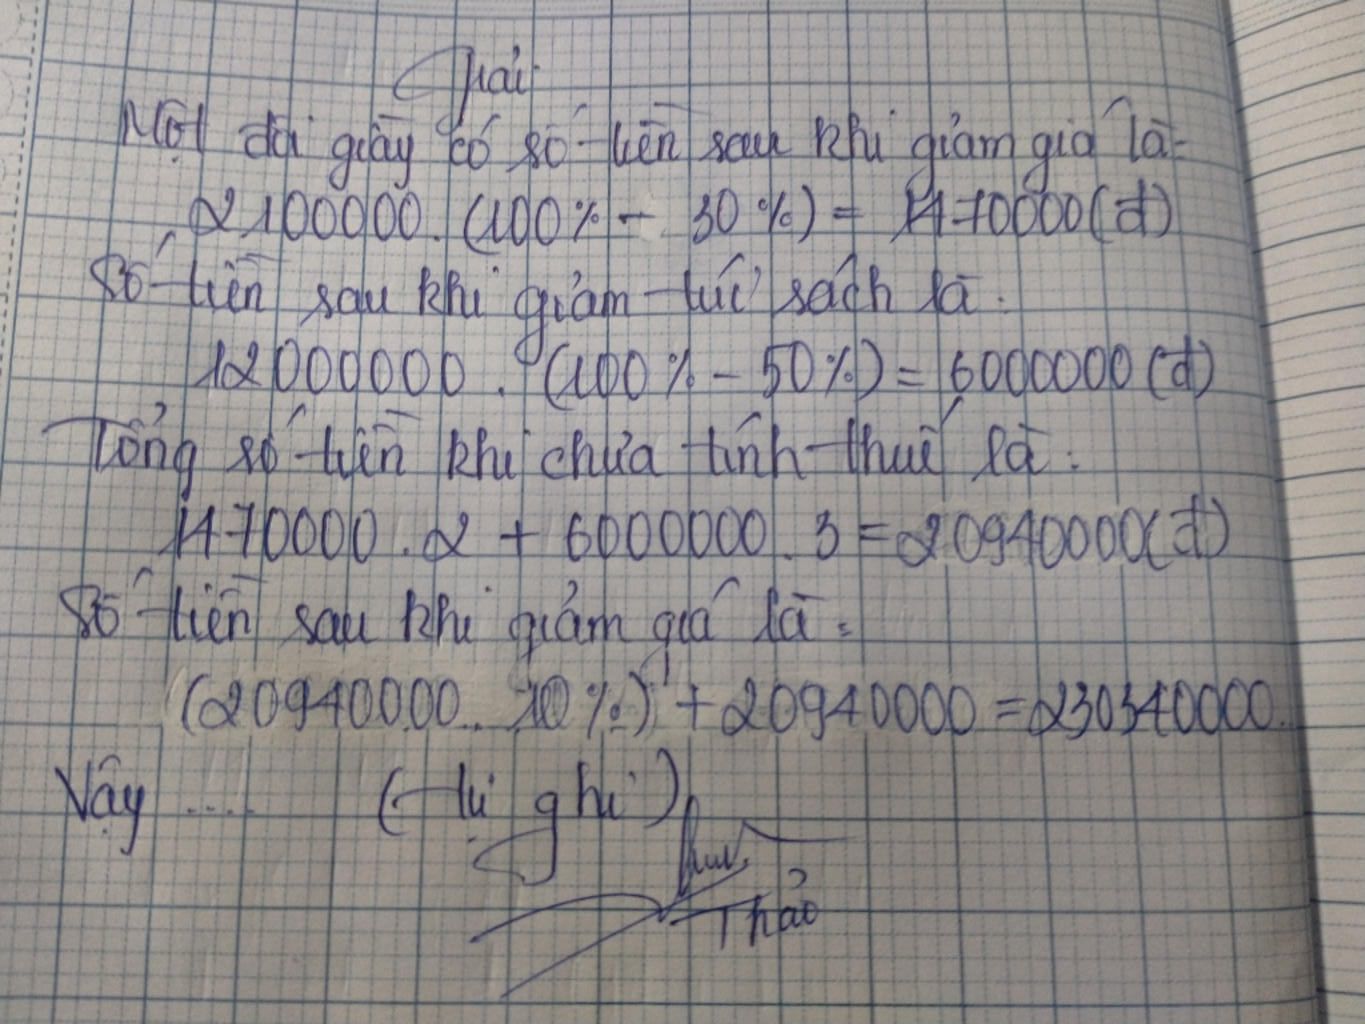 Giải
Một đôi giày có số tiền sau khi giảm giá là:
2100000.(100% - 30%) = 1470000(đ)
Số tiền sau khi giảm túi sách là:
12000000.(100% - 50%) = 6000000(đ)
Tổng số tiền khi chưa tính thuế là:
1470000.2 + 6000000.3 = 20940000(đ)
Số tiền sau khi giảm giá là:
(20940000.10%) + 20940000 = 230340000
Vậy .... (tự ghi)
Thảo